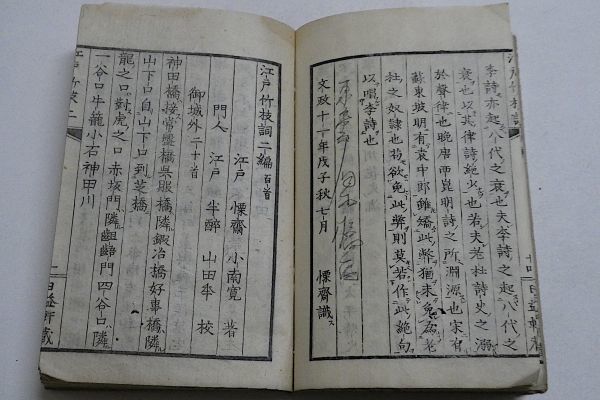 李詩亦起八代之衰也夫李詩之起八代之
衰也以其律詩絶少也若夫老杜詩史之溺
於聲律也晩唐西崑明詩之所淵源也宋有
蘇東坡明有袁中郎雖矯此弊猶未免為老
杜之奴隷也苟欲免此弊則莫若作此絶句
以唱李詩也
文政十一年戊子秋七月　慄齋識ス
江戸竹枝詞二編百首
江戸　慄齋　小南寛　著
門人　江戸　半醉　山田𠦪　校
御城外二十首
神田橋接常盤橋呉服橋隣鍛冶橋好事橋隣
山下口自山下口到芝橋
龍之口對虎之口赤坂門隣齟齬門四谷口隣
一谷口牛龍小石神田川
江戸竹枝二
日益軒蔵